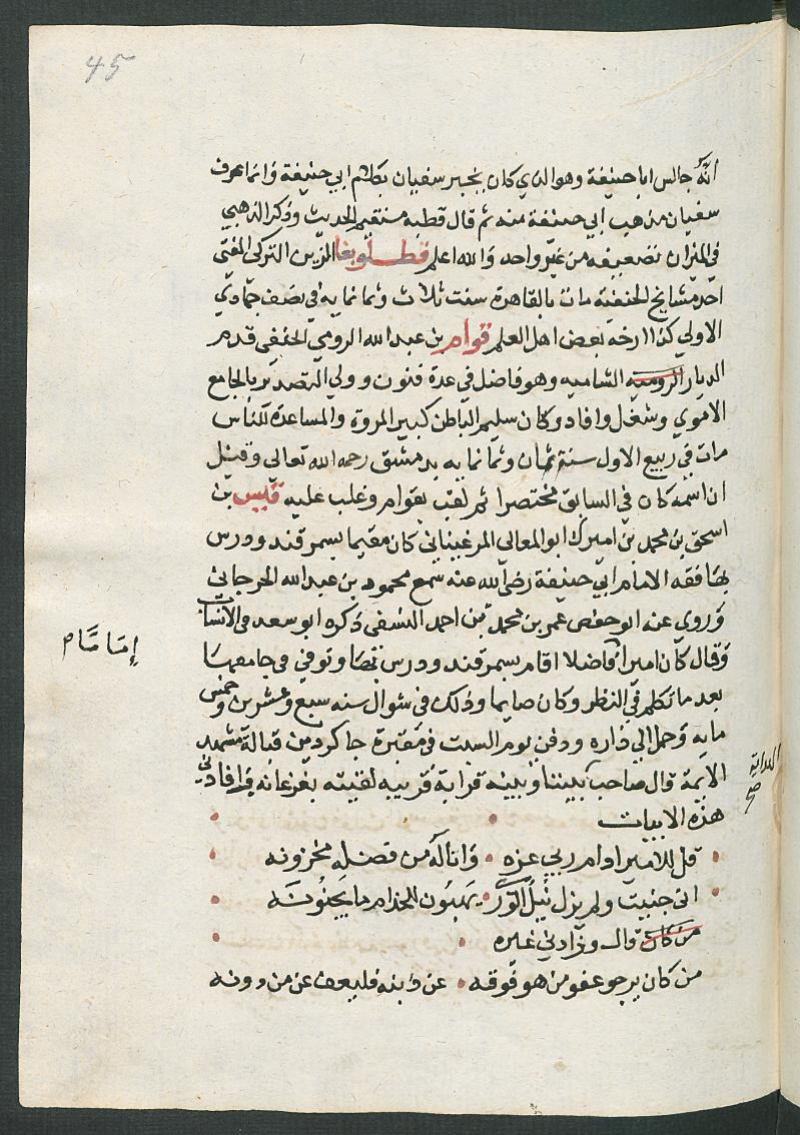 45
انه جالس ابا حنيفة وهو الذي كان يخبر سفيان بكلام ابي حنيفة وانما عرف
سفيان مذهب ابي حنيفة منه ثم قال قطبة مستقيم الحديث وذكر الذهبي
في الميزان تضعيفه من غير واحد والله اعلم قطلوبغا الزين التركي المفتي
احد مشايخ الحنفية مات بالقاهرة سنت ثلاث وثمانمايه في نصف جمادي
الاولي كذا ارخه بعض اهل العلم قوام بن عبد الله الرومي الحنفي قدم
الديار الروميه الشاميه وهو فاضل في عدة فنون وولي التصدير بالجامع
الاموي وشغل وافاد وكان سليم الباطن كبير المروة والمساعدة للناس
مات في ربيع الاول سنة ثمان وثمانمايه بدمشق رحمه الله تعالى وقيل
ان اسمه كان في السابق مختصرا ثم لقب بقوام وغلب عليه قيس بن
اسحق بن محمد بن اميرك ابو المعالي المرغيناني كان مقيما بسمرقند ودرس
بها فقه الامام ابي حنيفة رضي الله عنه سمع محمود بن عبد الله الجرجاني
وروى عنه ابو حفص عمر بن محمد بن احمد النسفي ذكره ابو سعد في الانساب
وقال كان اميرا فاضلا اقام بسمرقند ودرس بها وتوفي في جامعها
إماما مام
بعد ما تكلم في النظر وكان صايما وذلك في شوال سنه سبع وعشرين وخمس
مايه وحمل الي داره ودفن يوم السبت في مقبرة جاكرديز قبالة مشهد
الايمة قال صاحب بيننا وبينه قرابة قريبه لقيته بفرغانه وافادني
الهداية صح
هذه الابيات
قل للامير ادام ربي عزه وانا له من فضله مخزونه
اني جنيت ولم يزل نبل الورى يهبون للخدام ما يجنونه
من كان قال وزادني غيره
من كان يرجو عفو من هو فوقه عن ذنبه فليعف عن من دونه